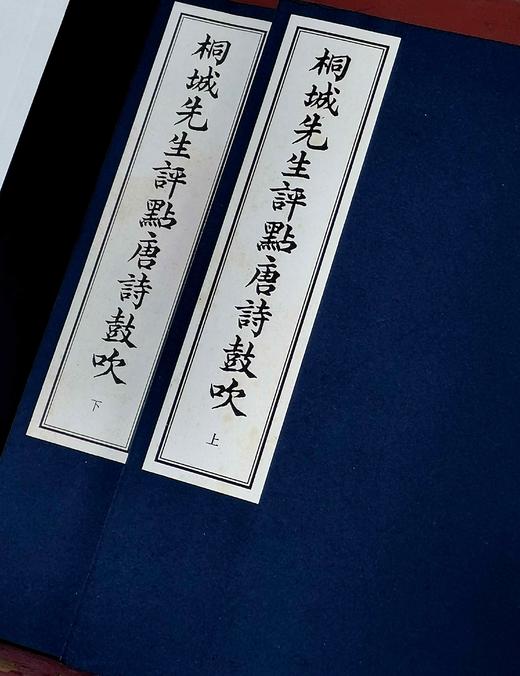 桐城先生評點唐詩鼓吹
上
桐城先生評點唐詩鼓吹
下